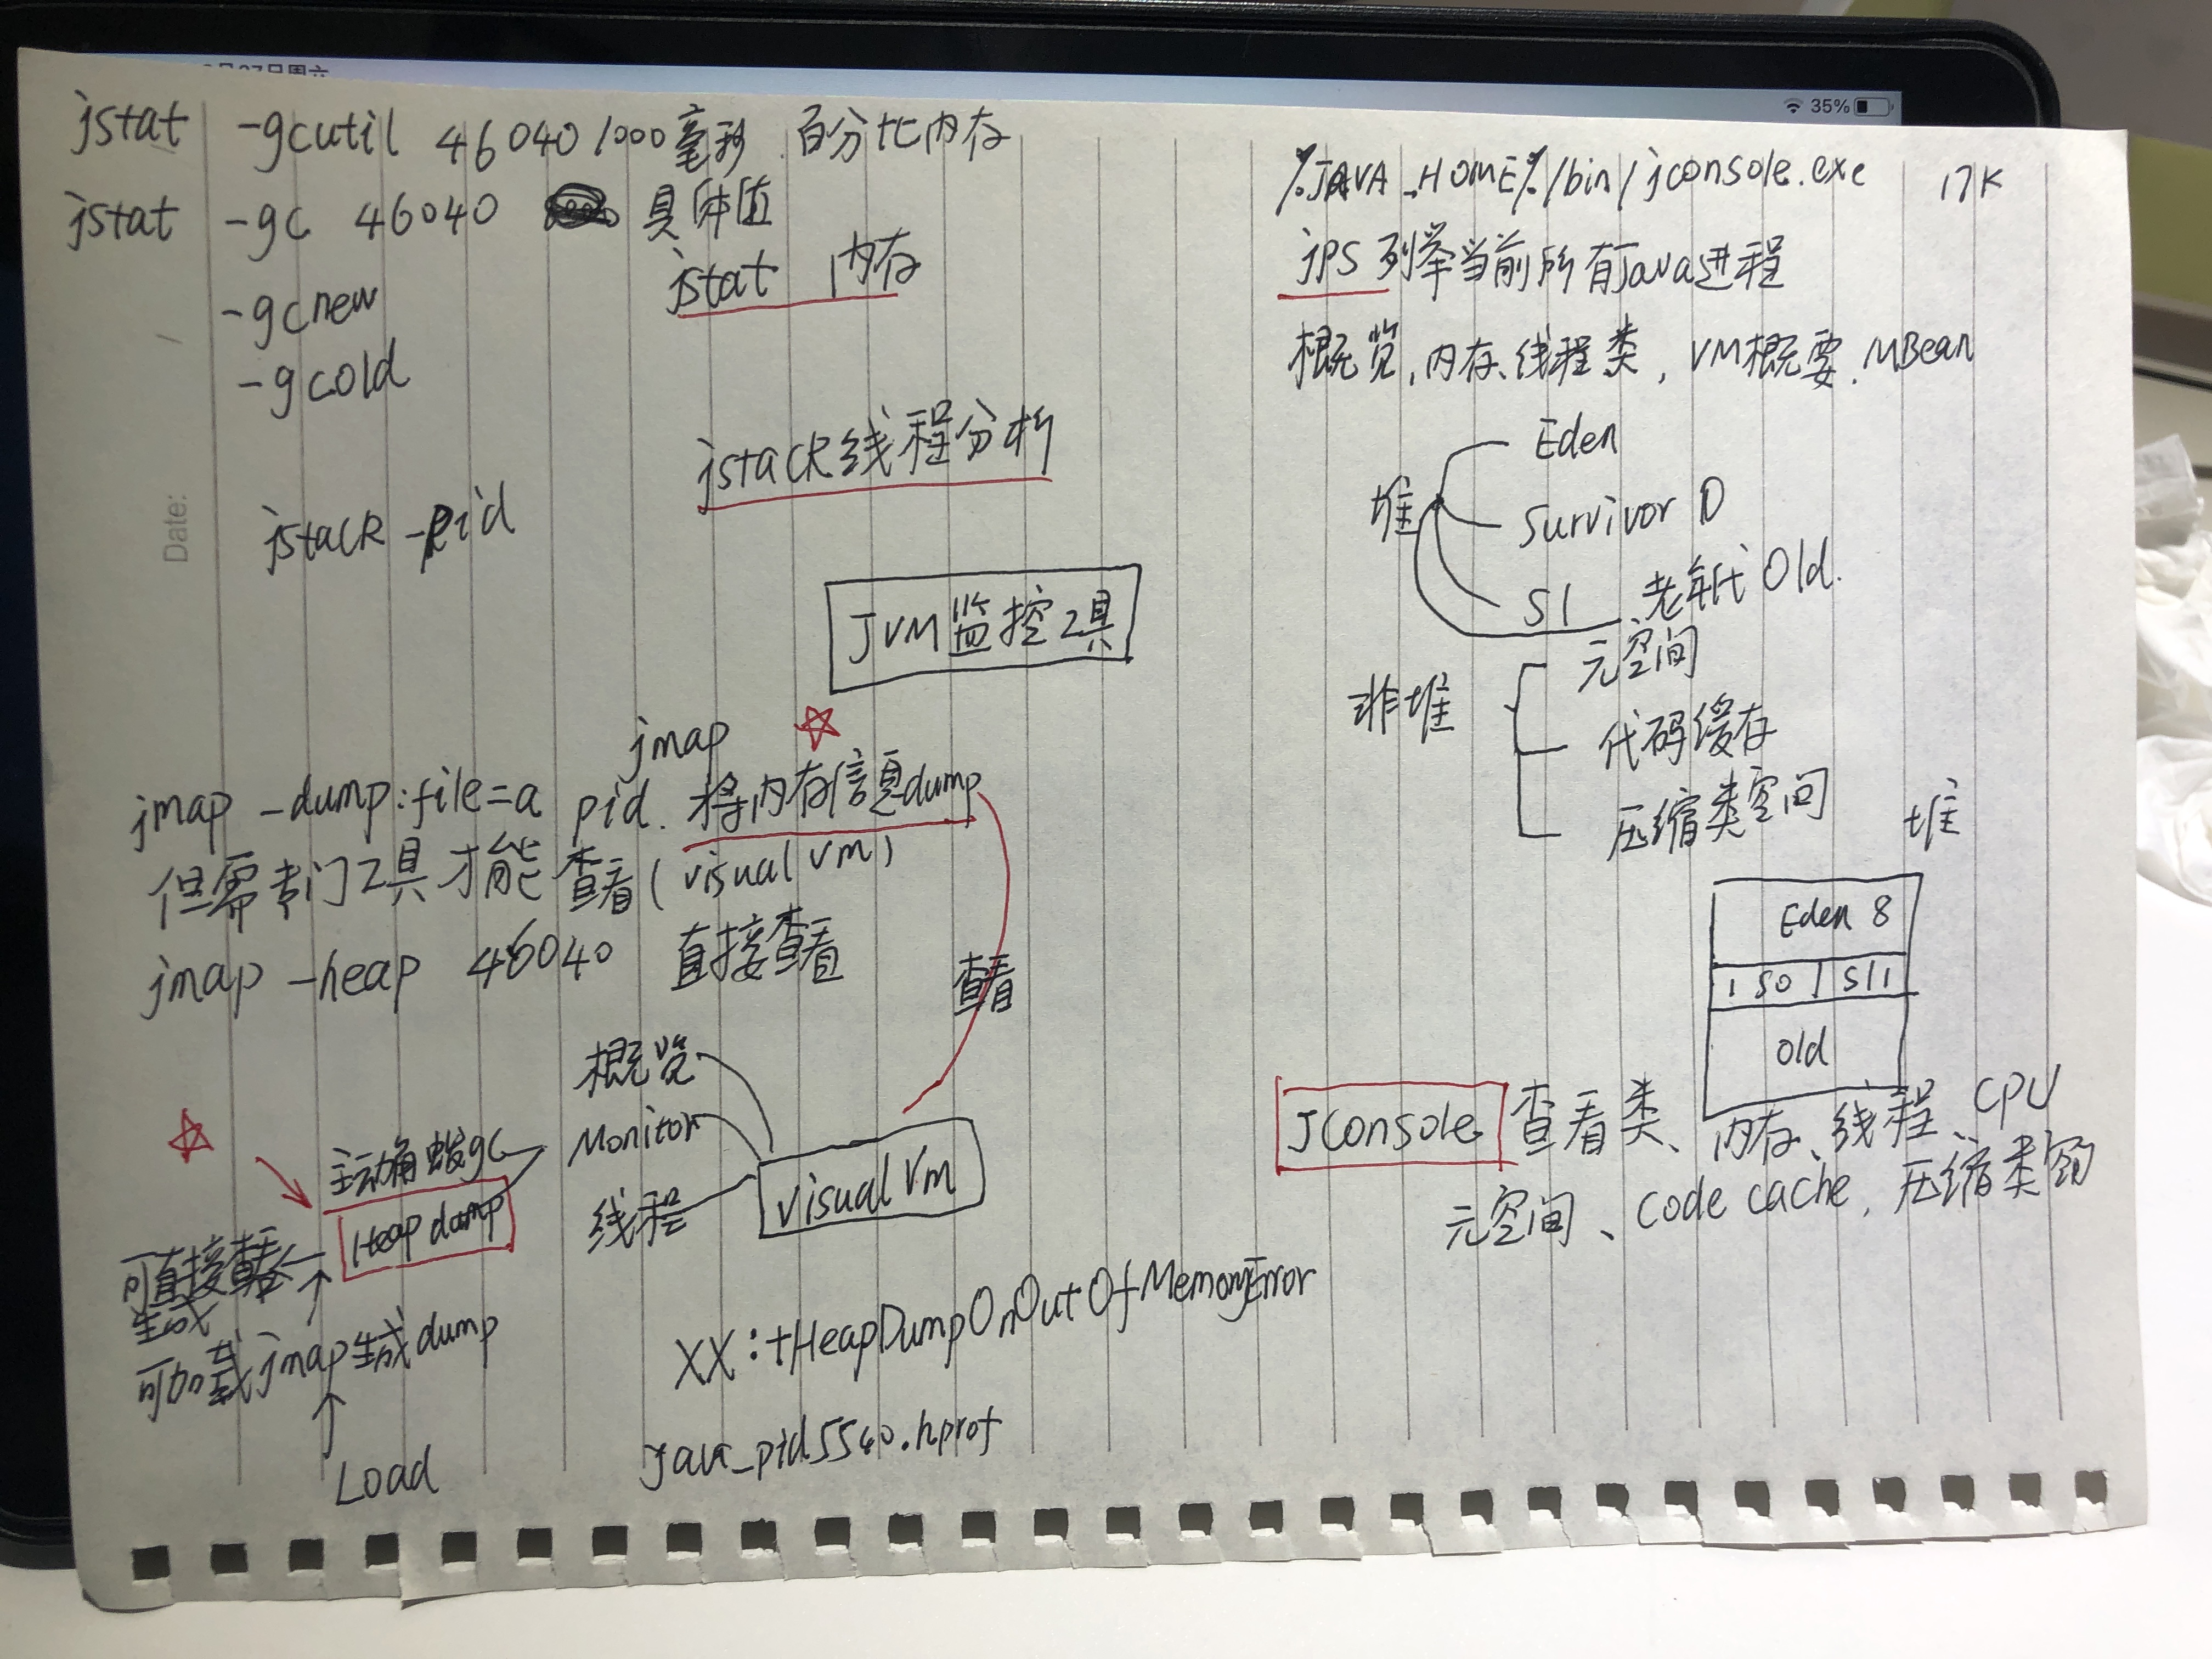 35%
jstat -gcutil 46040 1000毫秒 百分比内存
jstat -gc 46040 具体值
-gcnew
-gcold
jstat 内存
jstack线程分析
Date:
jstack -pid
JVM监控工具
jmap
jmap -dump:file=a pid. 将内存信息dump
但需专门工具才能查看(visual vm)
jmap -heap 46040 直接查看
查看
概览
Monitor
线程
visual vm
主动触发gc
Heap dump
可直接查看
生成
可加载jmap生成dump
Load
XX:+HeapDumpOnOutOfMemoryError
java_pid5540.hprof
%JAVA_HOME%/bin/jconsole.exe
jps 列举当前所有Java进程
概览,内存、线程类,VM概要.MBean
堆
Eden
Survivor 0
S1
老年代Old.
非堆
元空间
代码缓存
压缩类空间
堆
Eden 8
1 S0 | S1 1
Old
JConsole 查看类、内存、线程、CPU
元空间、Code cache,压缩类空间